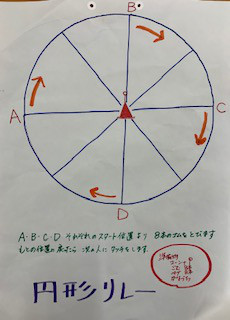 B
A
C
D
A・B・C・D それぞれのスタート位置より 8本のゴムをとびます
もとの位置に戻ったら 次の人にタッチをします。
準備物
コーン 1
ゴム 8本
円形リレー